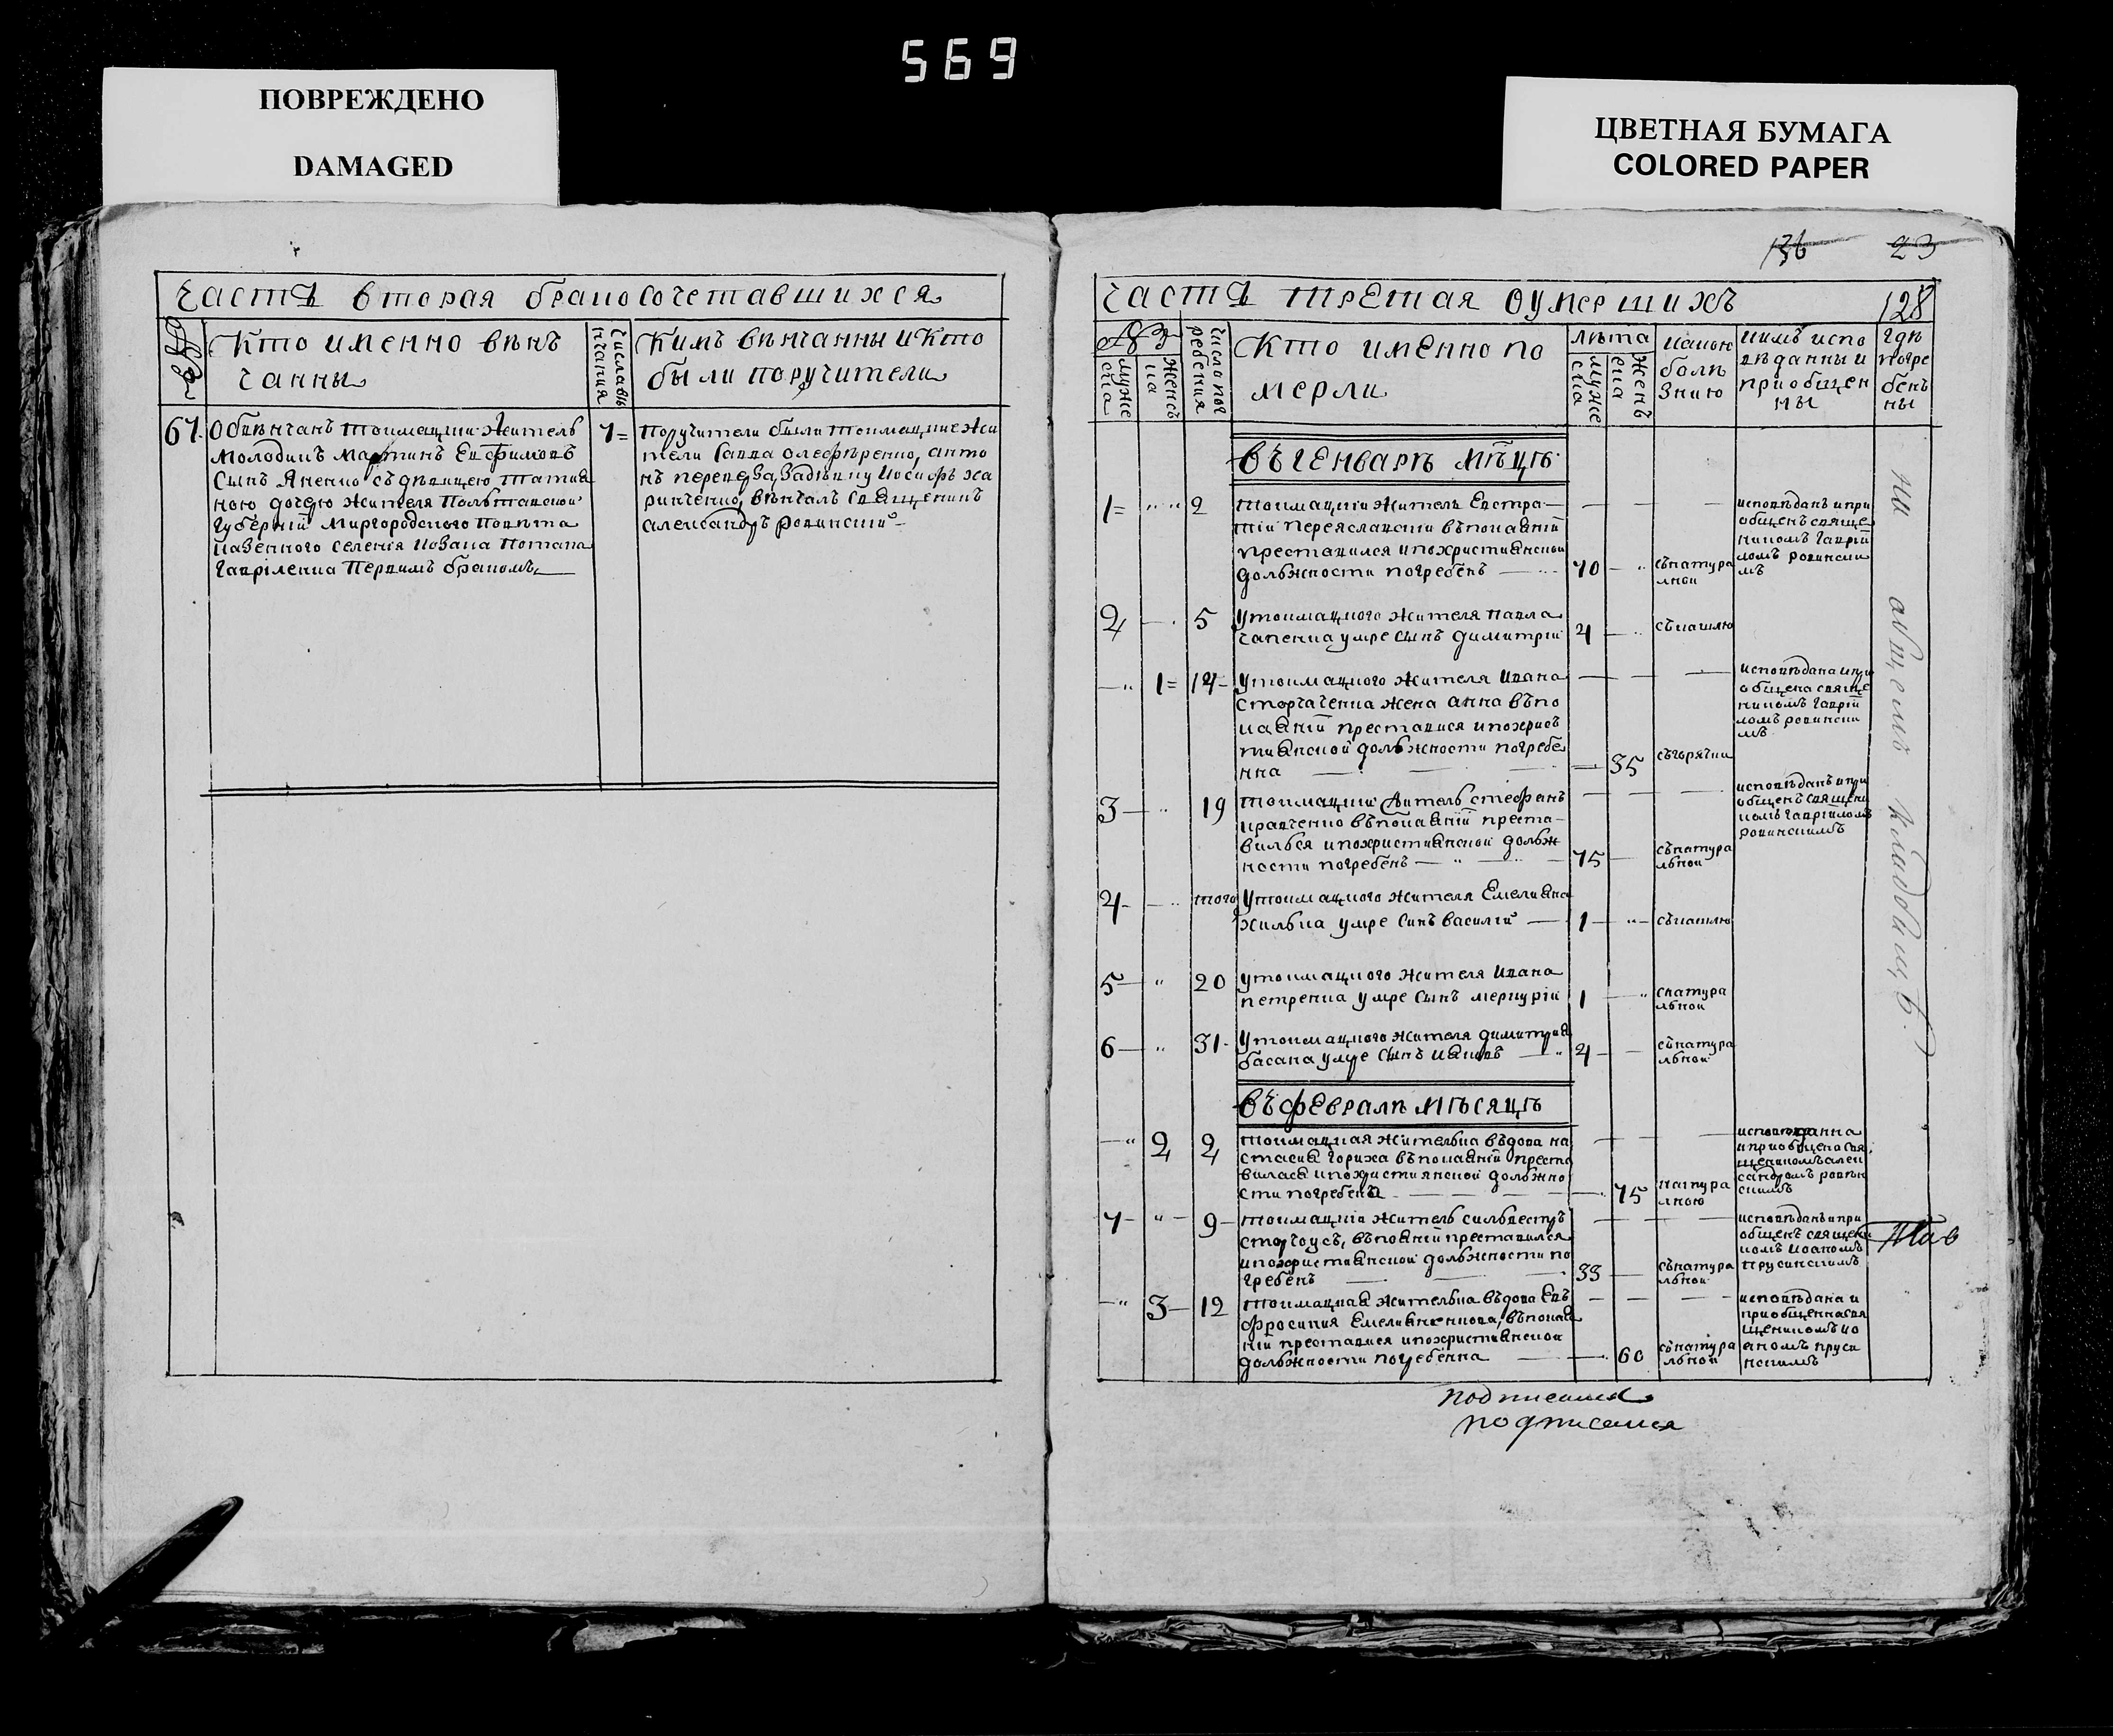 569
ПОВРЕЖДЕНО
DAMAGED
ЦВЕТНАЯ БУМАГА
COLORED PAPER
часть вторая бракосочетавшихся
№
Кто именно вѣнъ
чанны
число вѣ
нчания
Кимъ вѣнчанны и Кто
были поручители
67.
Обвѣнчанъ токмацкий житель
молодикъ мартинъ Евфимовъ
сынъ Яненко съ дѣвицею татия
ною дочерю жителя Полътавской
губернїй Миргородского Повѣта
казенного селения
Гаврїленка Первимъ бракомъ
7=
Поручители были токмацкие жи
тели Савва олеференко, анто
нъ
ринченко, вѣнчалъ священикъ
александръ ровинский
136 23
часть третая оумершихъ
128
№
муже
ска
женъс
ка
число пог
ребения
Кто именно по
мерли
лѣта
муже
ска
женъ
ска
какою
болѣ
знию
кимъ испо
вѣданны и
приобщен
ны
гдѣ
погре
бенъ
ны
въ генварѣ мѣцѣ
1= 2
токмацкїй житель Евстра-
тїй Переяславский въ покаянїй
преставился и по християнской
должности погребенъ
70
сънатура
лной
исповѣданъ и при
общенъ свяще
никомъ гаврїи
ломъ ровински
мъ
2 5
у токмацкого жителя Павла
чапенка умре сынъ димитрїй
4
съкашлю
1= 14-
у токмацкого жителя Ивана
сторчаченка жена анна въ по
каянїй преставися и по христ
тиянской должности погребе
нна
35
съгорячки
исповѣдана и при
общена свяще
никомъ гаврїи
ломъ ровински
мъ
3 19
токмацкий житель стефанъ
кравченко въ покаянїй преста-
вилъся и по християнской долъж
ности погребенъ
75
сънатура
лъной
исповѣданъ и при
общенъ священи
комъ гаврїиломъ
ровинскимъ
4- того
у токмацкого жителя Емелияна
хилька умре синъ василїй
1
съкашлю
5 20
у токмацкого жителя Ивана
петренка умре сынъ меркурїй
1
снатура
лъной
6 31-
у токмацкого жителя димитрия
басана умре сынъ
4
сънатура
лъной
въ февралѣ мѣсяцѣ
2 2
токмацкая жителька въдова на
стасия горпха въ покаянїй преста
вилася и по християнской должно
сти погребена
75
натура
лною
исповѣданна
и приобщена свя
щеникомъ алек
сандромъ ровин
скимъ
7- 9-
токмацкїй житель сильвестръ
сторчоусъ, въ покаянїй преставился
и по християнской должности по
гребенъ
33
сънатура
лъной
исповѣданъ и при
общенъ священи
комъ иоаномъ
прусинскимъ
3- 12
токмацкая жителька въдова Евъ
фросиния Емелияненкова, въ покая
нїи преставися и по християнской
должности погребенна
60
сънатура
лъной
исповѣдана и
приобщенна свя
щеникомъ ио
аномъ пруси
нскимъ
на общемъ кладбищѣ
Тав
подписался
подписался